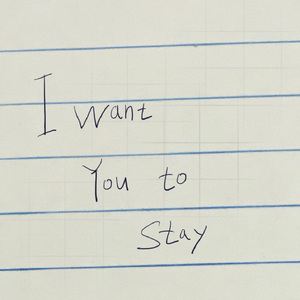 I want
You to
Stay